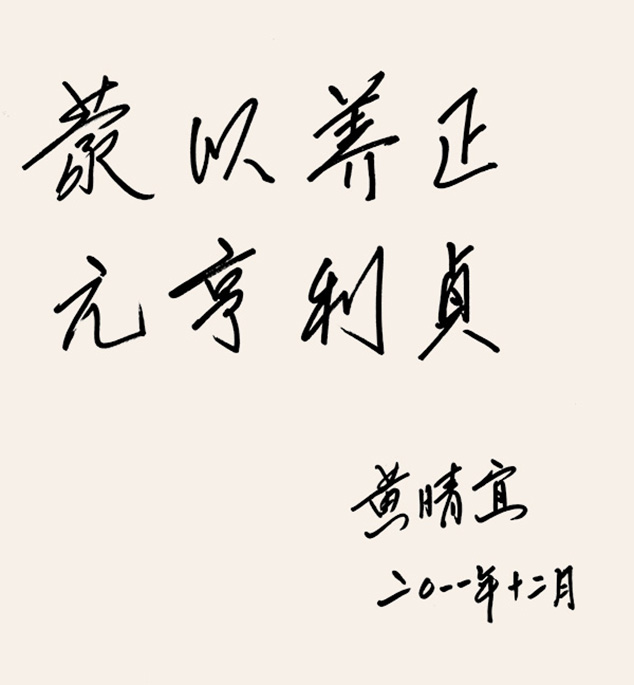 蒙以养正
元亨利貞
黄晴宜
二〇一一年十二月